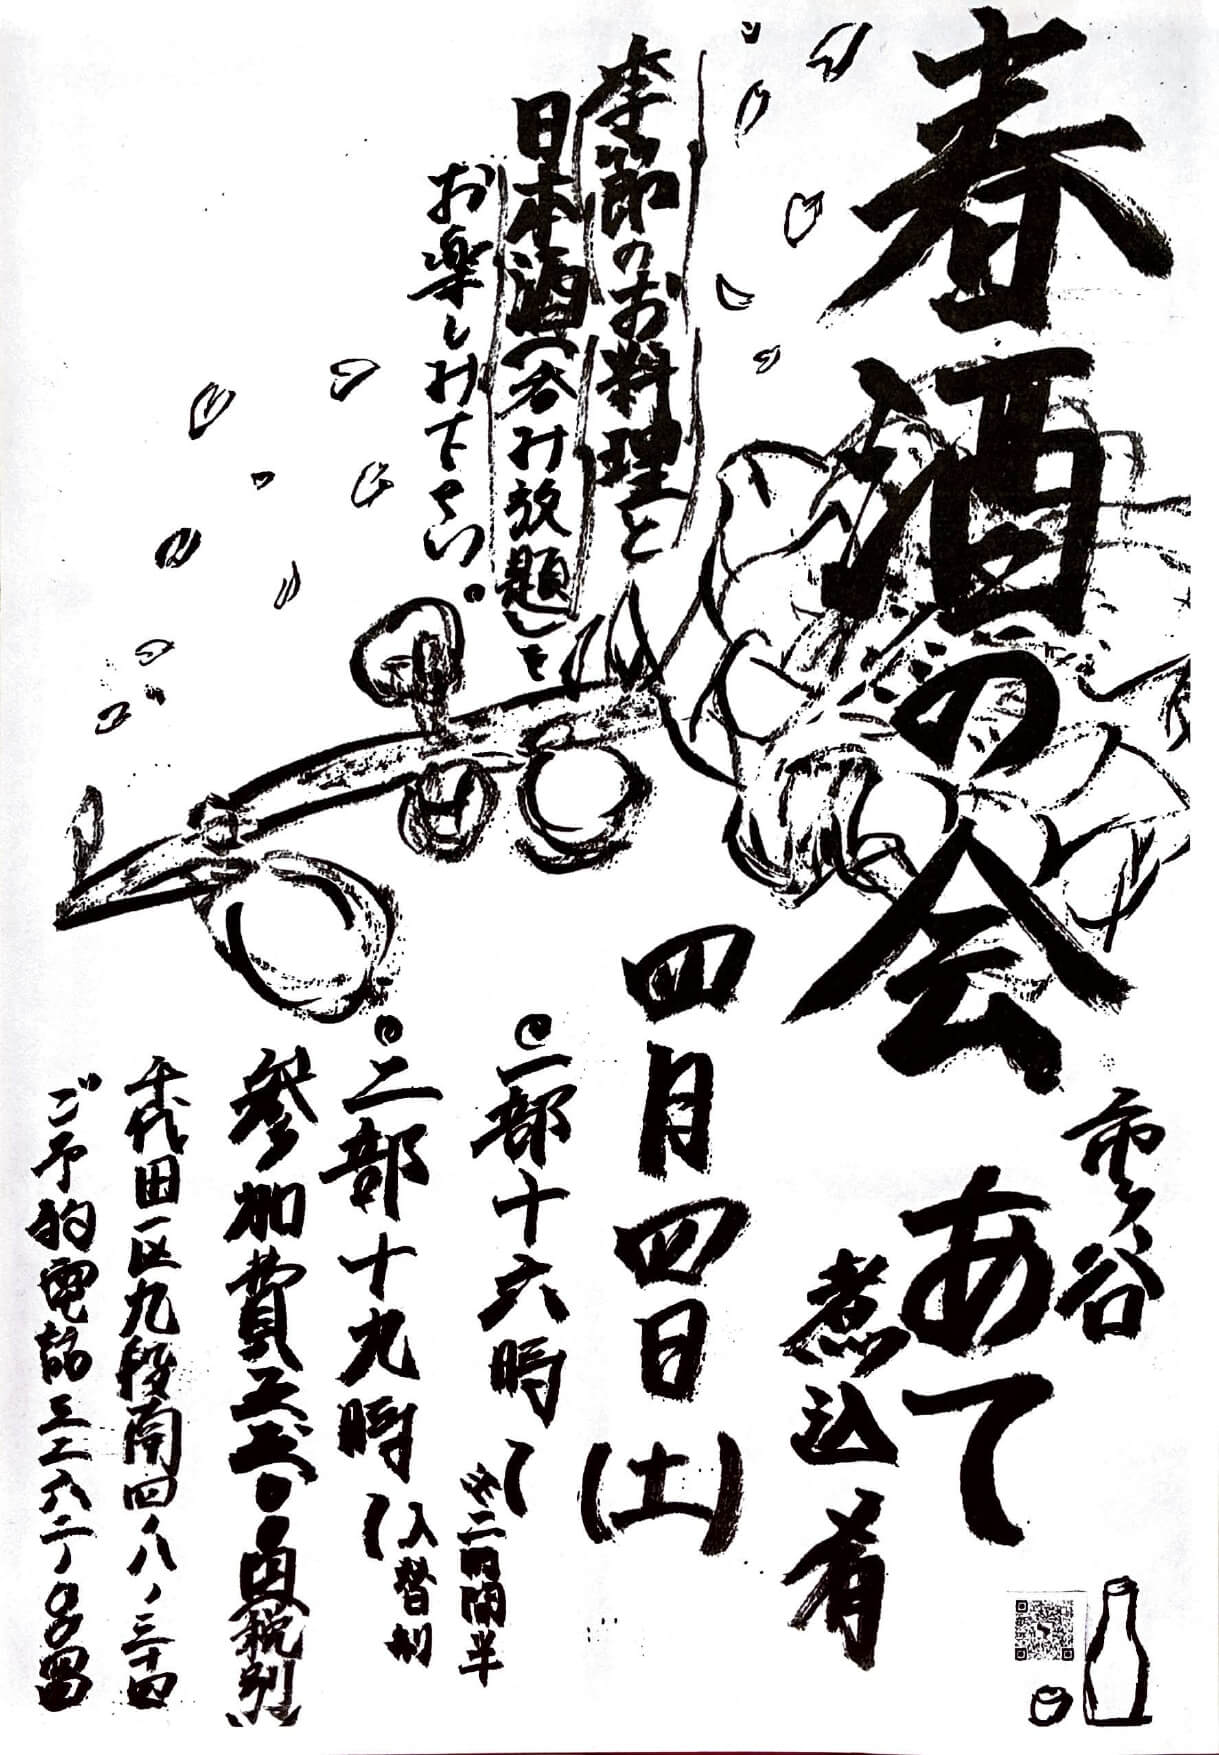 春酒の会
季節のお料理と
日本酒(呑み放題)を
お楽しみ下さい。
市ヶ谷
あて
煮込 肴
四月四日(土)
一部十六時〜
※二時間半
二部十九時〜
入替制
参加費五五〇〇 税別
千代田区九段南四ノ八ノ三十四
ご予約電話三二六二ノ